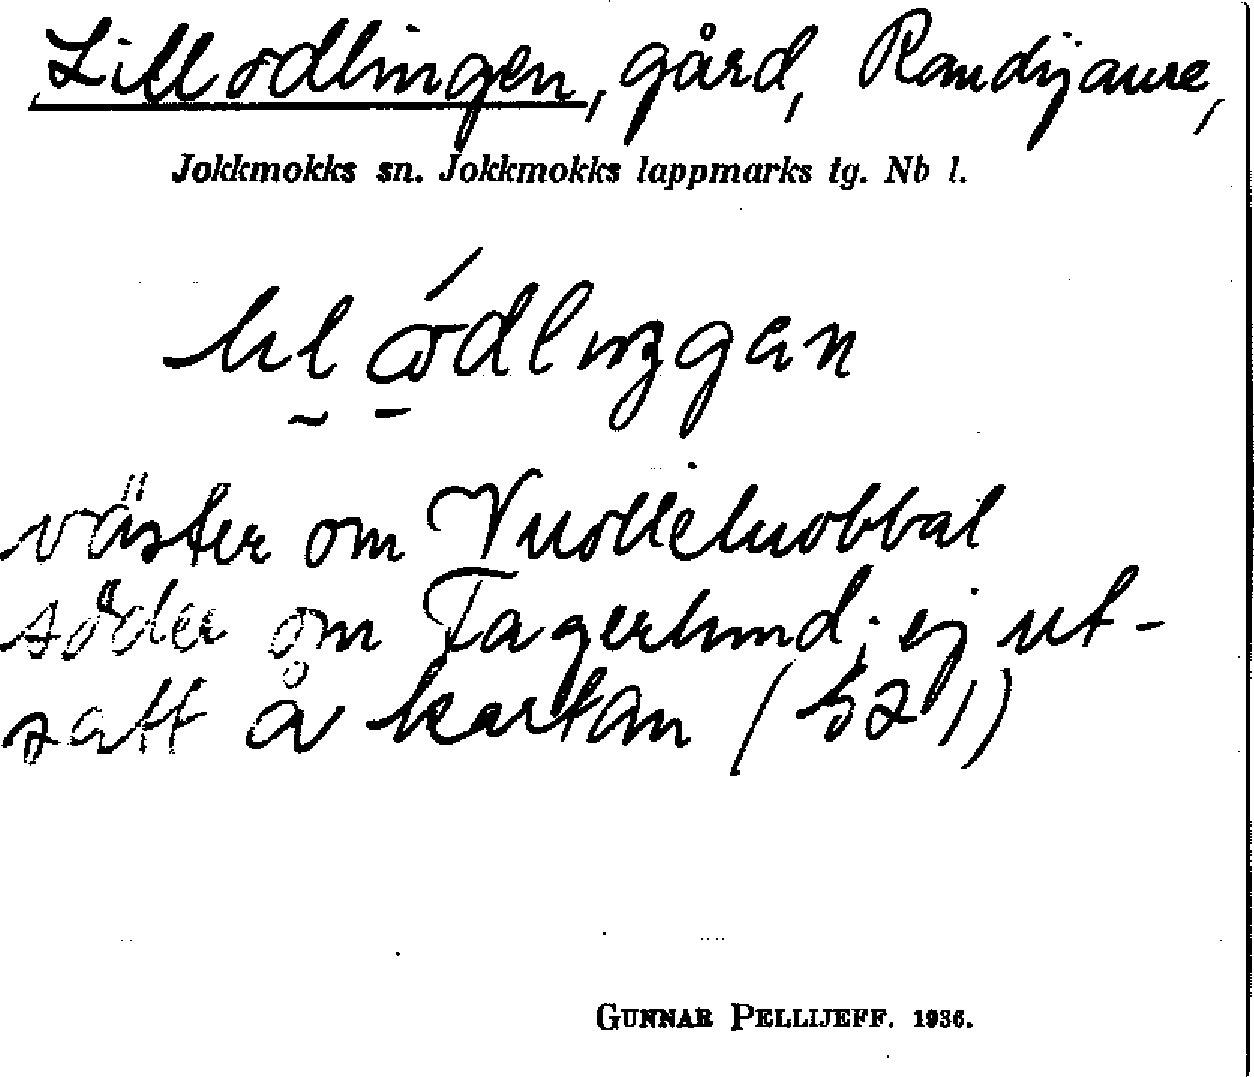 Lillodlingen, gård, Randijaure,
Jokkmokks sn. Jokkmokks lappmarks tg. Nb l.
väster om Vuollelubbal
söder om Fagerlund; ej ut-
satt å kartan (
GUNNAR PELLIJEFF. 1936.